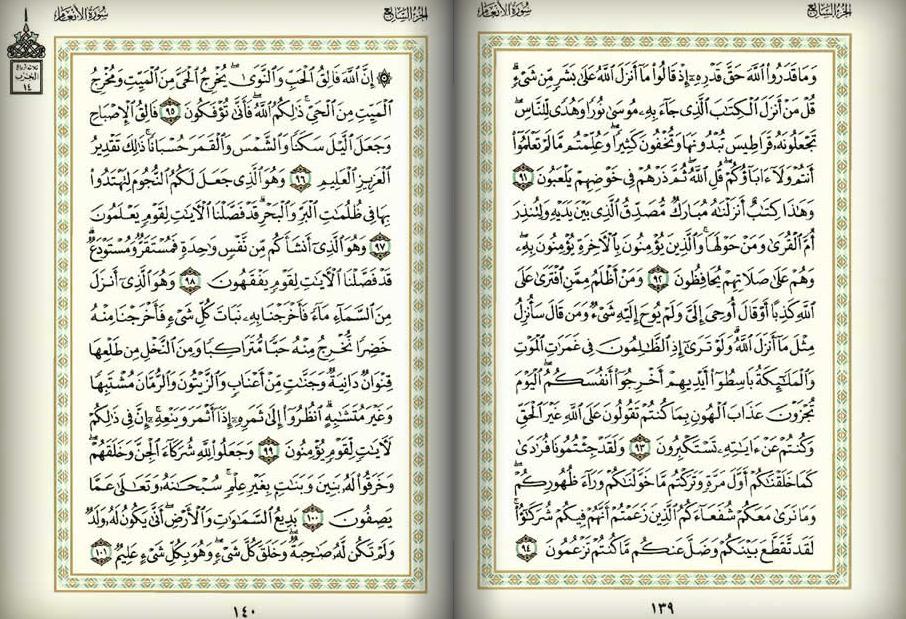 الجزء السابع
سورة الأنعام
وَمَا قَدَرُوا۟ ٱللَّهَ حَقَّ قَدْرِهِۦٓ إِذْ قَالُوا۟ مَآ أَنزَلَ ٱللَّهُ عَلَىٰ بَشَرٍ مِّن شَىْءٍ ۗ
قُلْ مَنْ أَنزَلَ ٱلْكِتَٰبَ ٱلَّذِى جَآءَ بِهِۦ مُوسَىٰ نُورًا وَهُدًى لِّلنَّاسِ ۖ
تَجْعَلُونَهُۥ قَرَاطِيسَ تُبْدُونَهَا وَتُخْفُونَ كَثِيرًا ۖ وَعُلِّمْتُم مَّا لَمْ تَعْلَمُوٓا۟
أَنتُمْ وَلَآ ءَابَآؤُكُمْ ۖ قُلِ ٱللَّهُ ۖ ثُمَّ ذَرْهُمْ فِى خَوْضِهِمْ يَلْعَبُونَ ٩١
وَهَٰذَا كِتَٰبٌ أَنزَلْنَٰهُ مُبَارَكٌ مُّصَدِّقُ ٱلَّذِى بَيْنَ يَدَيْهِ وَلِتُنذِرَ
أُمَّ ٱلْقُرَىٰ وَمَنْ حَوْلَهَا ۚ وَٱلَّذِينَ يُؤْمِنُونَ بِٱلْءَاخِرَةِ يُؤْمِنُونَ بِهِۦ ۖ
وَهُمْ عَلَىٰ صَلَاتِهِمْ يُحَافِظُونَ ٩٢ وَمَنْ أَظْلَمُ مِمَّنِ ٱفْتَرَىٰ عَلَى
ٱللَّهِ كَذِبًا أَوْ قَالَ أُوحِىَ إِلَىَّ وَلَمْ يُوحَ إِلَيْهِ شَىْءٌ وَمَن قَالَ سَأُنزِلُ
مِثْلَ مَآ أَنزَلَ ٱللَّهُ ۗ وَلَوْ تَرَىٰٓ إِذِ ٱلظَّٰلِمُونَ فِى غَمَرَٰتِ ٱلْمَوْتِ
وَٱلْمَلَٰٓئِكَةُ بَاسِطُوٓا۟ أَيْدِيهِمْ أَخْرِجُوٓا۟ أَنفُسَكُمُ ۖ ٱلْيَوْمَ
تُجْزَوْنَ عَذَابَ ٱلْهُونِ بِمَا كُنتُمْ تَقُولُونَ عَلَى ٱللَّهِ غَيْرَ ٱلْحَقِّ
وَكُنتُمْ عَنْ ءَايَٰتِهِۦ تَسْتَكْبِرُونَ ٩٣ وَلَقَدْ جِئْتُمُونَا فُرَٰدَىٰ
كَمَا خَلَقْنَٰكُمْ أَوَّلَ مَرَّةٍ وَتَرَكْتُم مَّا خَوَّلْنَٰكُمْ وَرَآءَ ظُهُورِكُمْ ۖ
وَمَا نَرَىٰ مَعَكُمْ شُفَعَآءَكُمُ ٱلَّذِينَ زَعَمْتُمْ أَنَّهُمْ فِيكُمْ شُرَكَٰٓؤُا۟ ۚ
لَقَد تَّقَطَّعَ بَيْنَكُمْ وَضَلَّ عَنكُم مَّا كُنتُمْ تَزْعُمُونَ ٩٤
١٣٩
الجزء السابع
سورة الأنعام
ثلاثة أرباع
الحزب
١٤
۞ إِنَّ ٱللَّهَ فَالِقُ ٱلْحَبِّ وَٱلنَّوَىٰ ۖ يُخْرِجُ ٱلْحَىَّ مِنَ ٱلْمَيِّتِ وَمُخْرِجُ
ٱلْمَيِّتِ مِنَ ٱلْحَىِّ ۚ ذَٰلِكُمُ ٱللَّهُ ۖ فَأَنَّىٰ تُؤْفَكُونَ ٩٥ فَالِقُ ٱلْإِصْبَاحِ
وَجَعَلَ ٱلَّيْلَ سَكَنًا وَٱلشَّمْسَ وَٱلْقَمَرَ حُسْبَانًا ۚ ذَٰلِكَ تَقْدِيرُ
ٱلْعَزِيزِ ٱلْعَلِيمِ ٩٦ وَهُوَ ٱلَّذِى جَعَلَ لَكُمُ ٱلنُّجُومَ لِتَهْتَدُوا۟
بِهَا فِى ظُلُمَٰتِ ٱلْبَرِّ وَٱلْبَحْرِ ۗ قَدْ فَصَّلْنَا ٱلْءَايَٰتِ لِقَوْمٍ يَعْلَمُونَ
٩٧ وَهُوَ ٱلَّذِىٓ أَنشَأَكُم مِّن نَّفْسٍ وَٰحِدَةٍ فَمُسْتَقَرٌّ وَمُسْتَوْدَعٌ ۗ
قَدْ فَصَّلْنَا ٱلْءَايَٰتِ لِقَوْمٍ يَفْقَهُونَ ٩٨ وَهُوَ ٱلَّذِىٓ أَنزَلَ
مِنَ ٱلسَّمَآءِ مَآءً فَأَخْرَجْنَا بِهِۦ نَبَاتَ كُلِّ شَىْءٍ فَأَخْرَجْنَا مِنْهُ
خَضِرًا نُّخْرِجُ مِنْهُ حَبًّا مُّتَرَاكِبًا وَمِنَ ٱلنَّخْلِ مِن طَلْعِهَا
قِنْوَانٌ دَانِيَةٌ وَجَنَّٰتٍ مِّنْ أَعْنَابٍ وَٱلزَّيْتُونَ وَٱلرُّمَّانَ مُشْتَبِهًا
وَغَيْرَ مُتَشَٰبِهٍ ۗ ٱنظُرُوٓا۟ إِلَىٰ ثَمَرِهِۦٓ إِذَآ أَثْمَرَ وَيَنْعِهِۦٓ ۚ إِنَّ فِى ذَٰلِكُمْ
لَءَايَٰتٍ لِّقَوْمٍ يُؤْمِنُونَ ٩٩ وَجَعَلُوا۟ لِلَّهِ شُرَكَآءَ ٱلْجِنَّ وَخَلَقَهُمْ ۖ
وَخَرَقُوا۟ لَهُۥ بَنِينَ وَبَنَٰتٍۭ بِغَيْرِ عِلْمٍ ۚ سُبْحَٰنَهُۥ وَتَعَٰلَىٰ عَمَّا
يَصِفُونَ ١٠٠ بَدِيعُ ٱلسَّمَٰوَٰتِ وَٱلْأَرْضِ ۖ أَنَّىٰ يَكُونُ لَهُۥ وَلَدٌ
وَلَمْ تَكُن لَّهُۥ صَٰحِبَةٌ ۖ وَخَلَقَ كُلَّ شَىْءٍ ۖ وَهُوَ بِكُلِّ شَىْءٍ عَلِيمٌ ١٠١
١٤٠